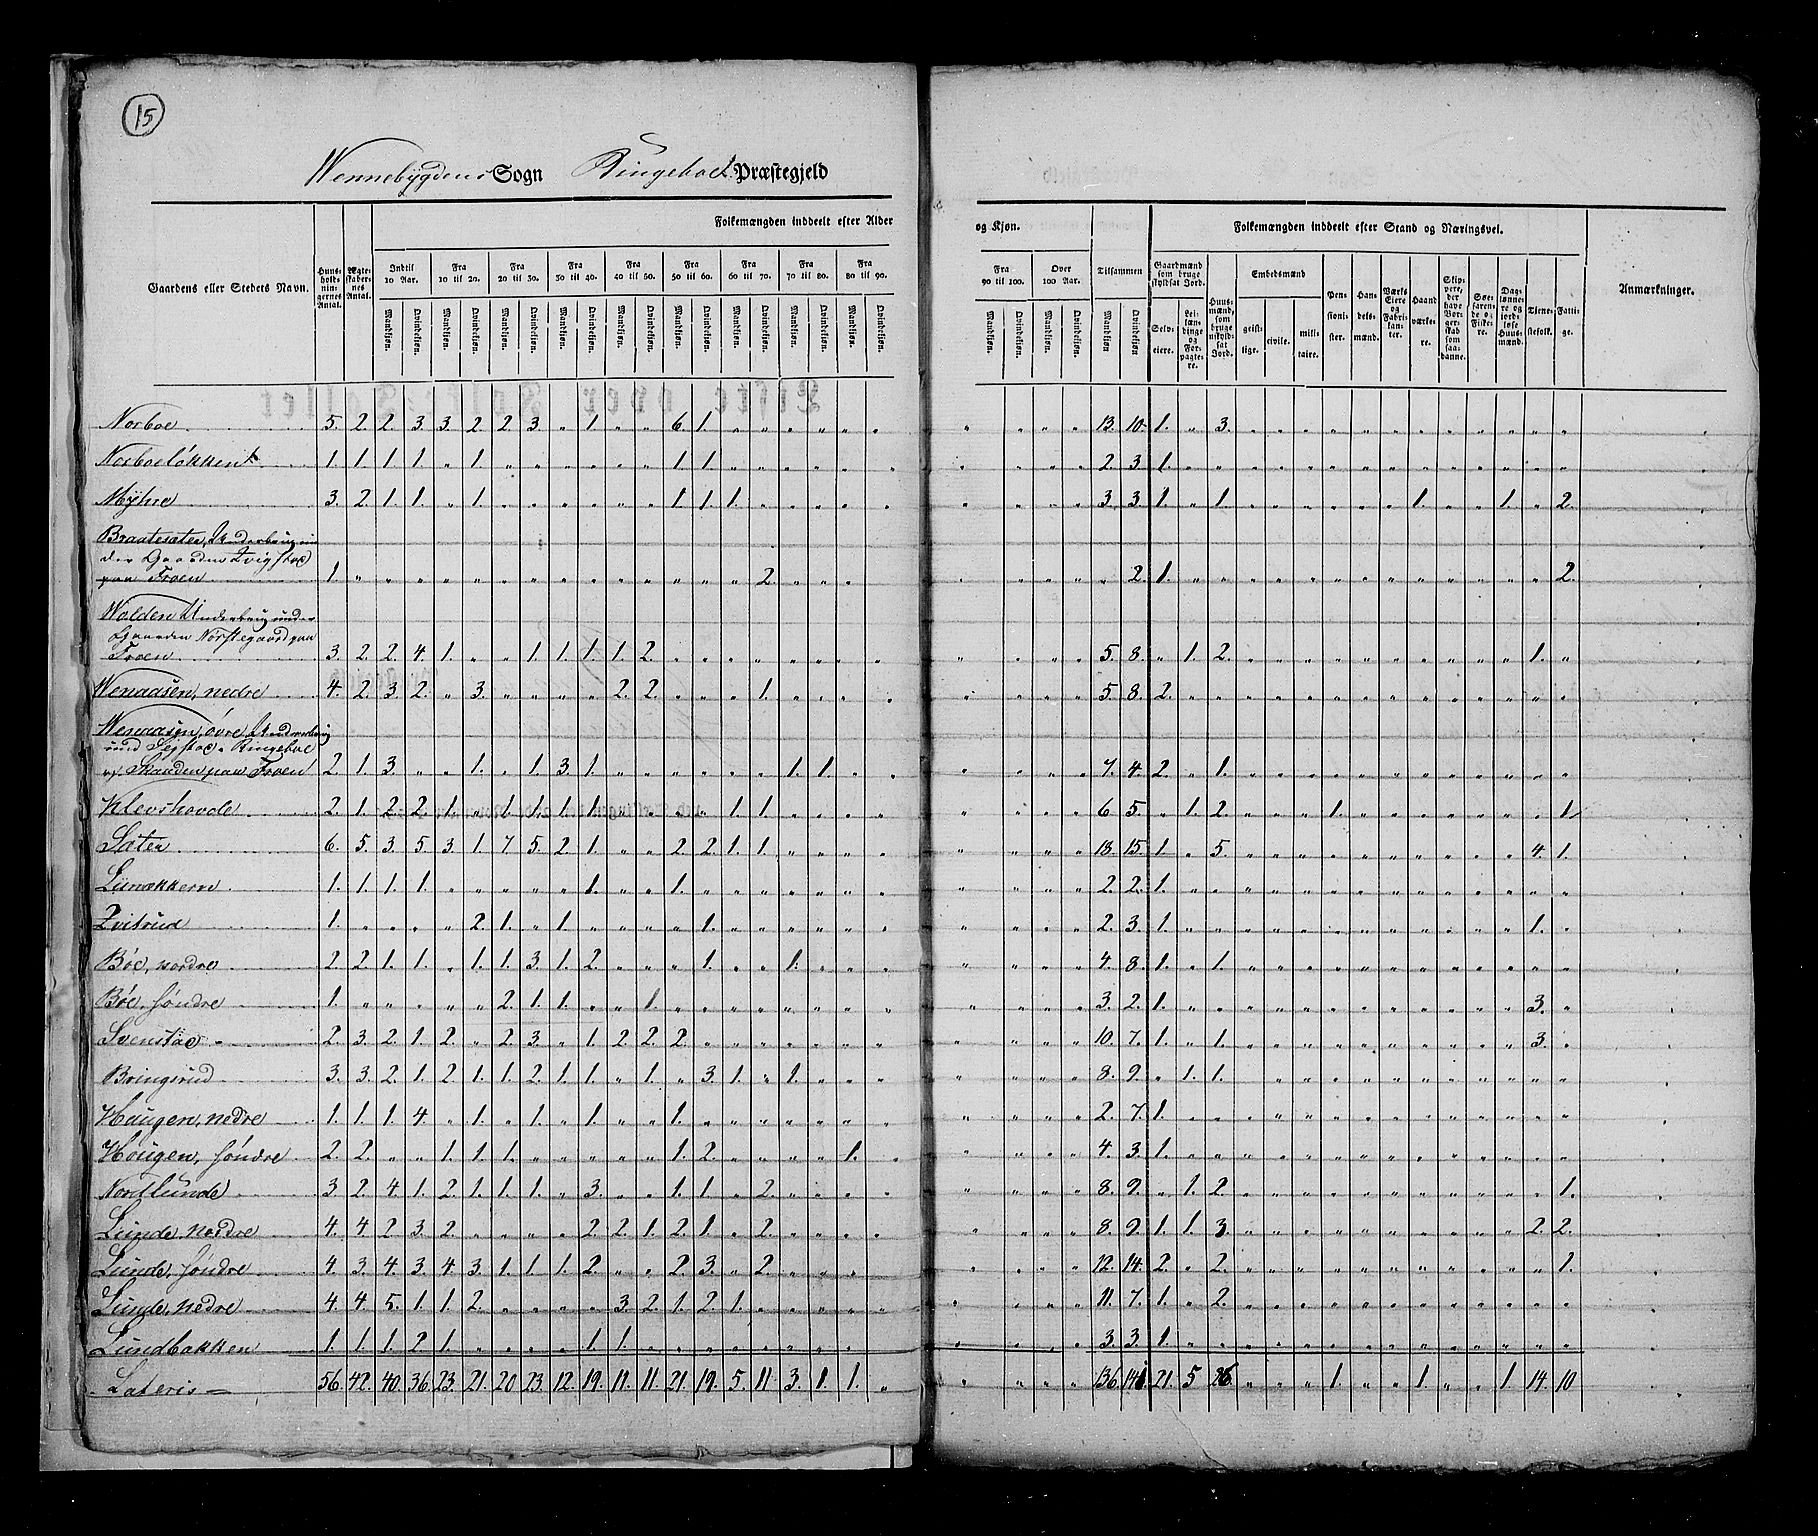 15
Wennebygdens Sogn Ringeboe Præstegjeld
Folkemængden inddeelt efter Alder
og Kjøn.
Folkemængden inddeelt efter Stand og Næringsvei.
Gaardens eller Stedets Navn.
Huus-holdningernes Antal.
Ægteskabernes Antal.
Indtil 10 Aar.
Fra 10 til 20.
Fra 20 til 30.
Fra 30 til 40.
Fra 40 til 50.
Fra 50 til 60.
Fra 60 til 70.
Fra 70 til 80.
Fra 80 til 90.
Fra 90 til 100.
Over 100 Aar.
Tilsammen
Mandkjøn. Qvindekjøn.
Gaardmænd som bruge skyldsat Jord.
Selveiere.
Leilændinge og Forpagtere.
Huusmænd, som bruge uskyldsat Jord.
Embedsmænd
geistlige. civile. militaire.
Pensionister.
Handelsmænd.
Værks Eiere og Fabrikanter.
Haandværkere.
Skippere, der have Borgerskab som saadanne.
Søefarende og Fiskere.
Daglønnere og jordløse Huusmænd.
Tjenestefolk.
Fattige.
Anmærkninger.
Norboe 5. 2. 2. 3. 3. 2. 2. 3. " 1. " " 6. 1. 13. 10. 1. " 3.
Norboeløkken 1. 1. 1. 1. " 1. 1. 1. 2. 3. 1.
Myhre 3. 2. 1. 1. " 1. 1. 1. 1. 3. 3. 1. " 1. 1. 1. 2.
Braatesater, Underbrug un
der Gaarden
paa Froen 1. 2. " 2. 1. 2.
Wolden Underbrug under
Gaarden Nørstegaard paa
Froen 3. 2. 2. 4. 1. " " 1. 1. 1. 1. 2. 5. 8. " 1. 2. 1.
Wenaasen, nedre 4. 2. 3. 2. " 3. 2. 2. 1. 5. 8. 2.
Wenaasen, øvre, Underbrug
Ringeboe
Skaaden paa Froen 2. 1. 3. " " 1. " 1. 3. 1. 1. 1. 7. 4. 2. " 1.
Klevshovde 2. 1. 2. 2. 1. " 1. 1. 1. 1. 1. 1. 6. 5. " 1. 2. 1. 1.
Sater 6. 5. 3. 5. 3. 1. 7. 5. 2. 1. " " 2. 2. 1. 1. 18. 15. 1. " 5. 4. 1.
1. 1. 1. 1. 1. 1. 2. 2. 1.
1. 2. 1. " 1. 1. 2. 3. 1. 1.
Bøe, nordre 2. 2. 1. 1. " 1. 1. 3. 1. 2. 1. 1. 4. 8. 1. " 1.
Bøe, søndre 1. 2. 1. 1. 1. 3. 2. 1. 3.
Svenstad 2. 3. 2. 1. 2. " 2. 3. " 1. 2. 2. 2. 10. 7. 1. " 1. 3.
Bringsrud 3. 3. 2. 1. 2. 1. 1. 2. 1. 1. " 1. " 3. 1. " 1. 8. 9. " 1. 1.
Haugen, nedre 1. 1. 1. 4. " 1. " 1. " 1. " " 1. 2. 7. 1.
Haugen, søndre 2. 2. " " 1. 1. 1. 1. 2. 1. 4. 3. 1.
Nordlunde 3. 2. 4. 1. 2. 1. 1. 1. " 3. " " 1. 1. " 2. 8. 9. " 1. 2. 1.
Lunde, nordre 4. 4. 2. 3. 2. 2. 2. 1. 2. 1. " 2. 8. 9. 1. 1. 3. 2. 2.
Lunde, søndre 4. 3. 4. 3. 4. 3. 1. 1. 1. 2. " " 2. 3. " 2. 12. 14. 2. " 2. 1.
Lunde, nedre 4. 4. 5. 1. 1. 2. 3. 2. 1. 2. 1. 11. 7. 1. " 2.
Lundbakken 1. 1. 1. 2. 1. 1. 1. 3. 3. 1.
Lateris 56. 42. 40. 36. 23. 21. 20 23. 12. 19. 11. 11. 21. 19. 5. 11. 3. 1. 1. " 136 21. 5 1. 1. 1. 14. 10